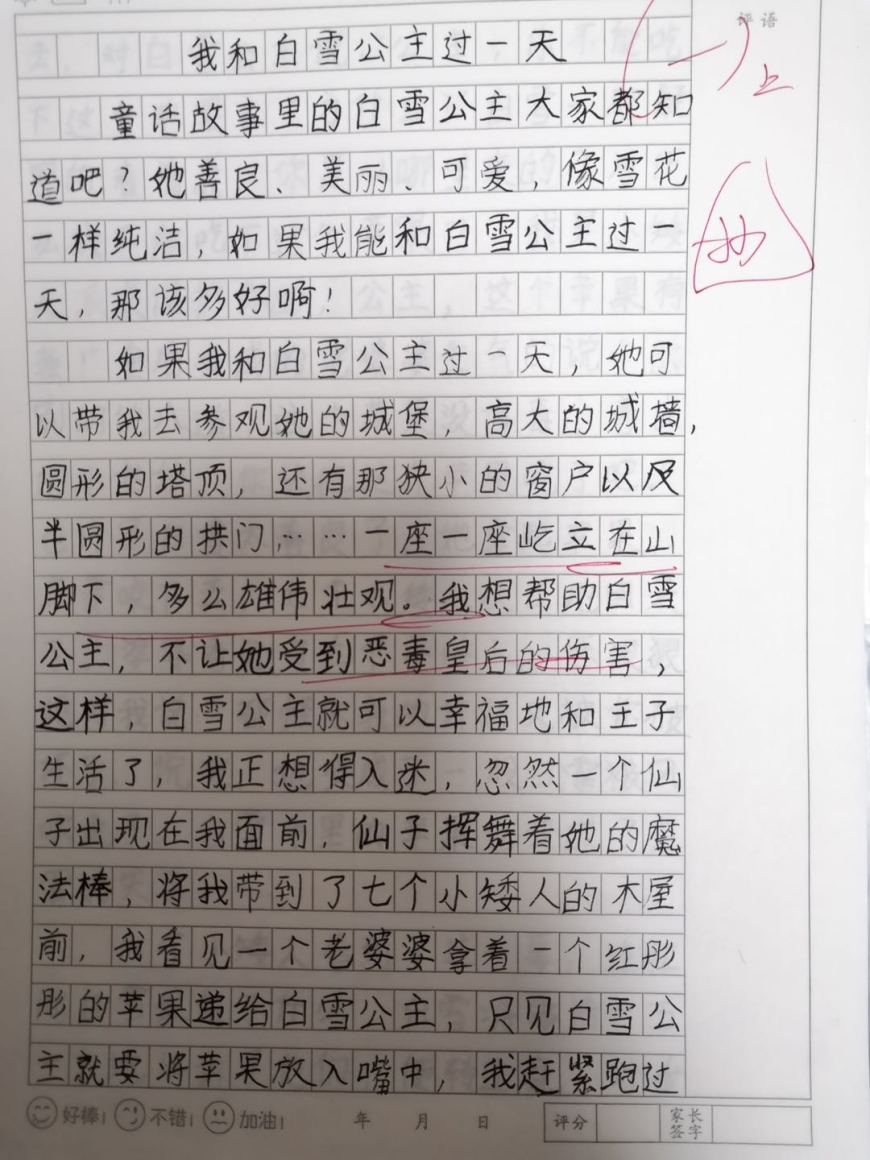 评语
我和白雪公主过一天
童话故事里的白雪公主大家都知
道吧？她善良、美丽、可爱，像雪花
一样纯洁，如果我能和白雪公主过一
天，那该多好啊！
如果我和白雪公主过一天，她可
以带我去参观她的城堡，高大的城墙，
圆形的塔顶，还有那狭小的窗户以及
半圆形的拱门，……一座一座屹立在山
脚下，多么雄伟壮观。我想帮助白雪
公主，不让她受到恶毒皇后的伤害，
这样，白雪公主就可以幸福地和王子
生活了，我正想得入迷，忽然一个仙
子出现在我面前，仙子挥舞着她的魔
法棒，将我带到了七个小矮人的木屋
前，我看见一个老婆婆拿着一个红彤
彤的苹果递给白雪公主，只见白雪公
主就要将苹果放入嘴中，我赶紧跑过
好棒！ 不错！ 加油！ 年 月 日 评分 家长签字